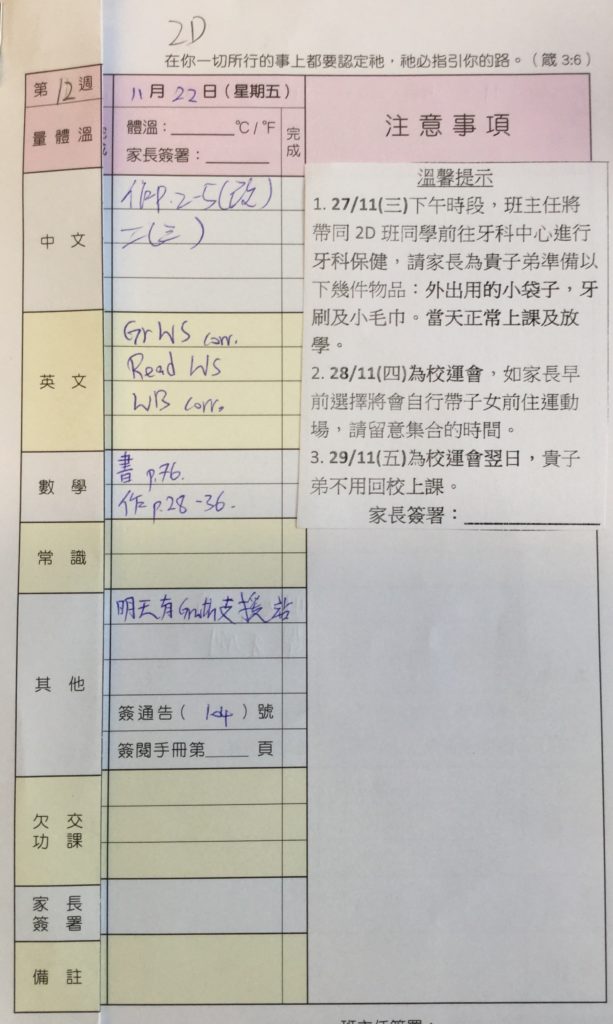 2D
在你一切所行的事上都要認定祂，祂必指引你的路。（箴 3:6）
第 12 週
11 月 22 日（星期五）
注意事項
量體溫
體溫：______℃/℉
家長簽署：______
完成
中文
作p.2-5(改)
二(三)
英文
GrWS corr.
Read WS
WB corr.
數學
書 p.76.
作 p.28-36.
常識
其他
明天有 支援站
簽通告（ ）號
簽閱手冊第____頁
欠交功課
家長簽署
備註
溫馨提示
1. 27/11(三)下午時段，班主任將
帶同 2D 班同學前往牙科中心進行
牙科保健，請家長為貴子弟準備以
下幾件物品：外出用的小袋子，牙
刷及小毛巾。當天正常上課及放
學。
2. 28/11(四)為校運會，如家長早
前選擇將會自行帶子女前住運動
場，請留意集合的時間。
3. 29/11(五)為校運會翌日，貴子
弟不用回校上課。
家長簽署：____________